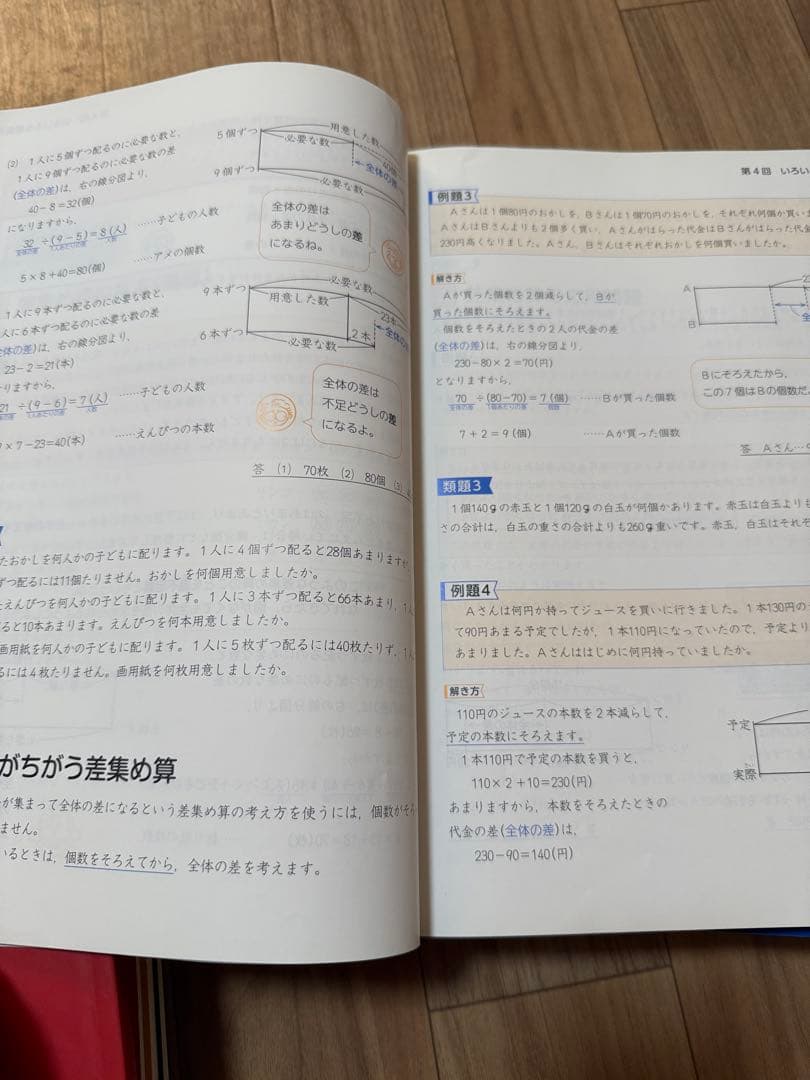 (2) 1人に5個ずつ配るのに必要な数と、
1人に9個ずつ配るのに必要な数の差
(全体の差)は、右の線分図より、
40-8=32(個)
になりますから、
32÷(9-5)=8(人) ……子どもの人数
全体の差 1人あたりの差 人数
5×8+40=80(個) ……アメの個数
5個ずつ
用意した数
必要な数
全体の差
9個ずつ
必要な数
全体の差は
あまりどうしの差
になるね。
1人に9本ずつ配るのに必要な数と、
人に6本ずつ配るのに必要な数の差
全体の差)は、右の線分図より、
23-2=21(本)
なりますから、
21÷(9-6)=7(人) ……子どもの人数
1人あたりの差 人数
×7-23=40(本) ……えんぴつの本数
9本ずつ
必要な数
用意した数
23本
6本ずつ
必要な数
2本
全体の
全体の差は
不足どうしの差
になるよ。
答 (1) 70枚 (2) 80個 (3)
たおかしを何人かの子どもに配ります。1人に4個ずつ配ると28個あまりますが、
ずつ配るには11個たりません。おかしを何個用意しましたか。
たえんぴつを何人かの子どもに配ります。1人に3本ずつ配ると66本あまり、1人
ると10本あまります。えんぴつを何本用意しましたか。
画用紙を何人かの子どもに配ります。1人に5枚ずつ配るには40枚たりず、1人
るには4枚たりません。画用紙を何枚用意しましたか。
がちがう差集め算
が集まって全体の差になるという差集め算の考え方を使うには、個数がそろ
ません。
いるときは、個数をそろえてから、全体の差を考えます。
第4回 いろい
例題3
Aさんは1個80円のおかしを、Bさんは1個70円のおかしを、それぞれ何個か買いま
Aさんは Bさんよりも2個多く買い、Aさんがはらった代金はBさんがはらった代金
230円高くなりました。Aさん、Bさんはそれぞれおかしを何個買いましたか。
解き方
Aが買った個数を2個減らして、Bが
買った個数にそろえます。
個数をそろえたときの2人の代金の差
(全体の差)は、右の線分図より、
230-80×2=70(円)
となりますから、
70÷(80-70)=7(個) ……Bが買った個数
全体の差 1個あたりの差 個数
7+2=9(個) ……Aが買った個数
A
B
Bにそろえたから、
この7個はBの個数だ
答 Aさん…9
類題3
1個140gの赤玉と1個120gの白玉が何個かあります。赤玉は白玉よりも
さの合計は、白玉の重さの合計よりも260g重いです。赤玉、白玉はそれぞ
例題4
Aさんは何円か持ってジュースを買いに行きました。1本130円の
て90円あまる予定でしたが、1本110円になっていたので、予定より
あまりました。Aさんははじめに何円持っていましたか。
解き方
110円のジュースの本数を2本減らして、
予定の本数にそろえます。
1本110円で予定の本数を買うと、
110×2+10=230(円)
あまりますから、本数をそろえたときの
代金の差(全体の差)は、
230-90=140(円)
予定
実際